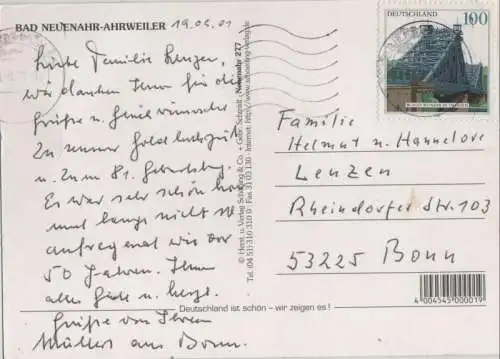 BAD NEUENAHR-AHRWEILER 19.05.01
Liebe Familie Lenzen,
wir danken Ihnen für die
Grüße u. Glückwünsche
zu unserer Goldhochzeit
u. zum 81. Geburtstag.
Es war sehr schön
und lange nicht so
aufregend wie vor
50 Jahren. Ihnen
alles Gute u. herzl.
Grüße von Ihren
Müllers aus Bonn.
© Herst. u. Verlag Schöning & Co. + Gebr. Schmidt, Neuenahr 277
Tel. (0451) 310 310 9 · Fax 31 03 130 · Internet: http://www.schoening-verlag.de
Deutschland ist schön – wir zeigen es!
DEUTSCHLAND 100
Familie
Helmut u. Hannelore
Lenzen
Rheindorfer Str. 103
53225 Bonn
4 004545 000019